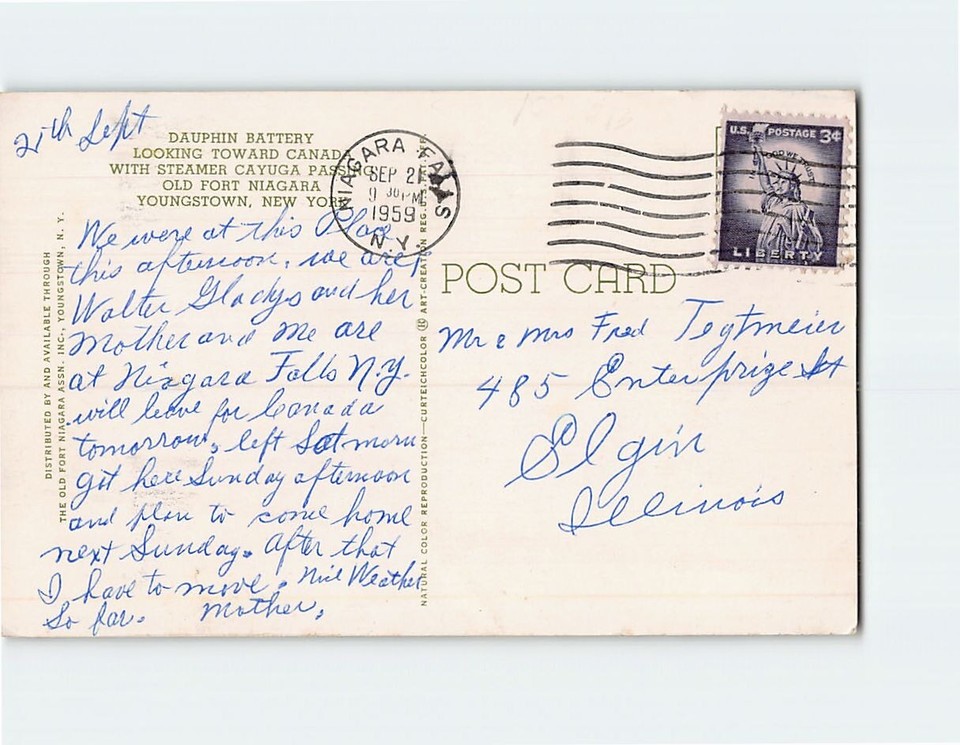 21th Sept
DAUPHIN BATTERY
LOOKING TOWARD CANADA
WITH STEAMER CAYUGA PASSING
OLD FORT NIAGARA
YOUNGSTOWN, NEW YORK
We were at this Place
this afternoon. we are,
Walter Gladys and her
Mother and Me are
at Niagara Falls N.Y.
will leave for Canada
tomorrow, left Sat morn
got here Sunday afternoon
and plan to come home
next Sunday. After that
I have to move. Nice Weather
So far. Mother.
DISTRIBUTED BY AND AVAILABLE THROUGH
THE OLD FORT NIAGARA ASSN. INC., YOUNGSTOWN, N. Y.
NATURAL COLOR REPRODUCTION—CURTEICHCOLOR ® ART-CREATION REG.
NIAGARA FALLS
SEP 21
9 30 PM
1959
N.Y.
U.S. POSTAGE 3¢
IN GOD WE TRUST
LIBERTY
POST CARD
Mr & Mrs Fred Tegtmeier
485 Enterprize St
Elgin
Illinois